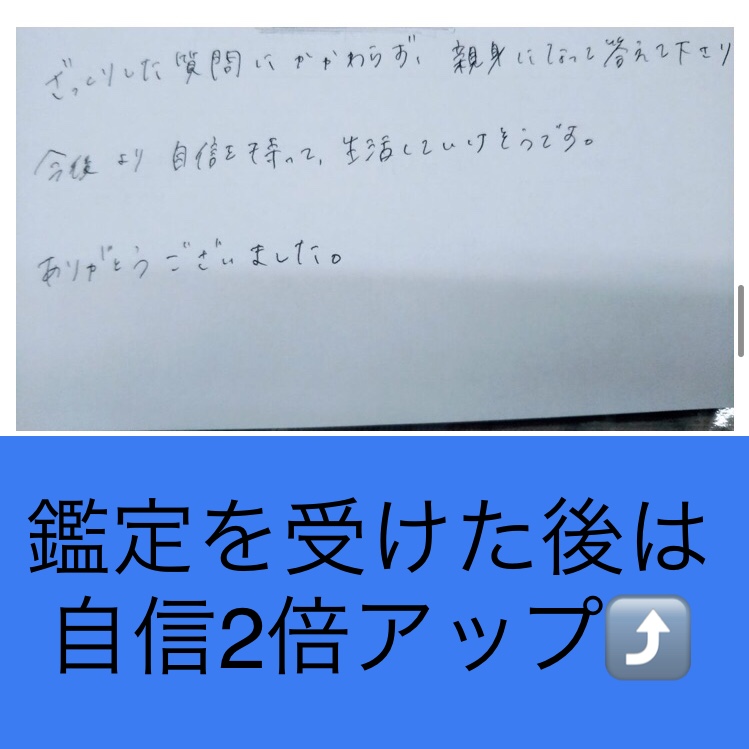 ざっくりした質問にかかわらず、親身になって答えて下さり
今後より自信を持って、生活していけそうです。
ありがとうございました。
鑑定を受けた後は
自信2倍アップ⤴